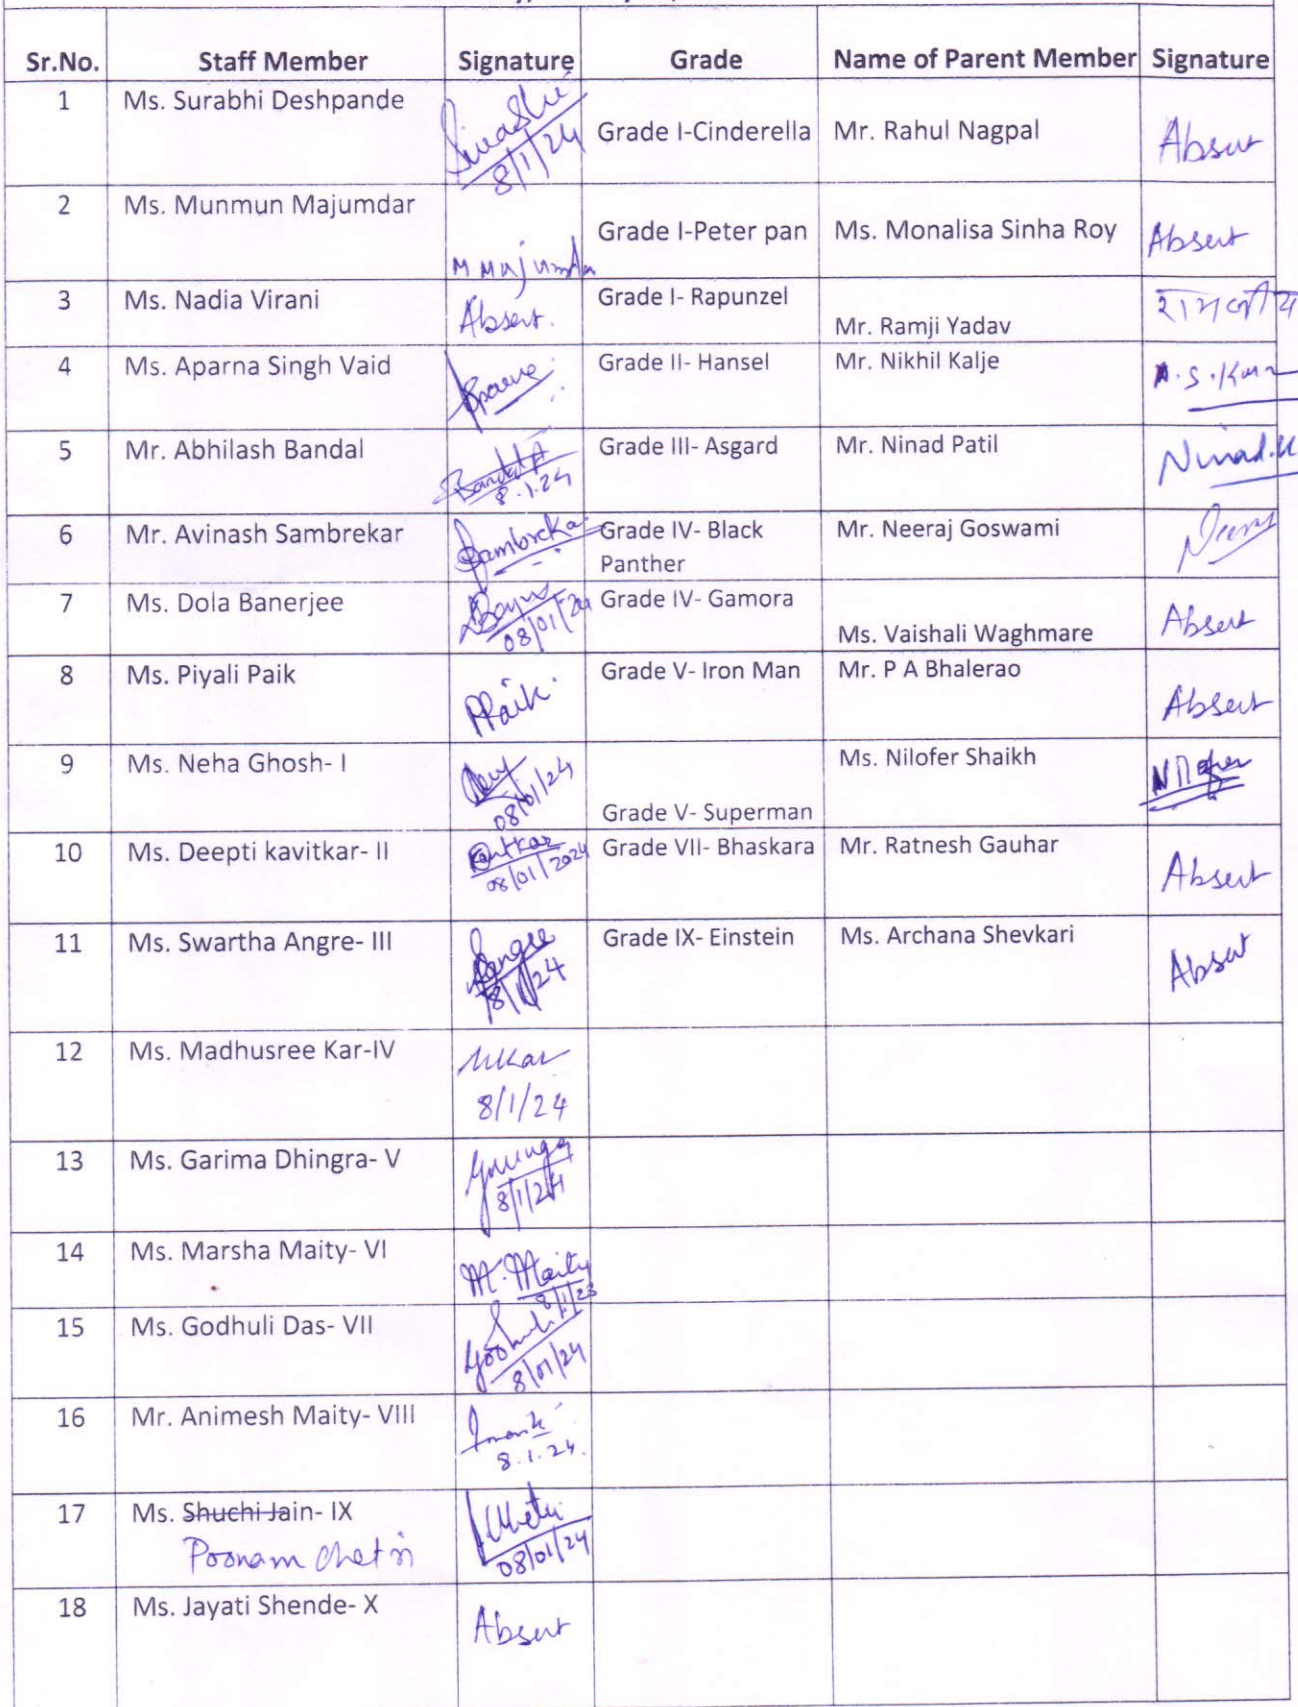 Sr.No. Staff Member Signature Grade Name of Parent Member Signature
1 Ms. Surabhi Deshpande 8/1/24 Grade I-Cinderella Mr. Rahul Nagpal Absent
2 Ms. Munmun Majumdar M Majumdar Grade I-Peter pan Ms. Monalisa Sinha Roy Absent
3 Ms. Nadia Virani Absent. Grade I- Rapunzel Mr. Ramji Yadav
4 Ms. Aparna Singh Vaid Grade II- Hansel Mr. Nikhil Kalje
5 Mr. Abhilash Bandal Bandal A Grade III- Asgard Mr. Ninad Patil Ninad.
8.1.24
6 Mr. Avinash Sambrekar Sambreka Grade IV- Black Mr. Neeraj Goswami
Panther
7 Ms. Dola Banerjee 08/01/24 Grade IV- Gamora Ms. Vaishali Waghmare Absent
8 Ms. Piyali Paik PPaik. Grade V- Iron Man Mr. P A Bhalerao Absent
9 Ms. Neha Ghosh- I 08/01/24 Grade V- Superman Ms. Nilofer Shaikh Nilofer
10 Ms. Deepti kavitkar- II Grade VII- Bhaskara Mr. Ratnesh Gauhar Absent
08/01/2024
11 Ms. Swartha Angre- III Sangre Grade IX- Einstein Ms. Archana Shevkari Absent
8/1/24
12 Ms. Madhusree Kar-IV MKar
8/1/24
13 Ms. Garima Dhingra- V
8/1/24
14 Ms. Marsha Maity- VI M. Maity
8/1/23
15 Ms. Godhuli Das- VII Godhuli
8/01/24
16 Mr. Animesh Maity- VIII
8.1.24.
17 Ms. Shuchi Jain- IX
Poonam Chetri 08/01/24
18 Ms. Jayati Shende- X Absent